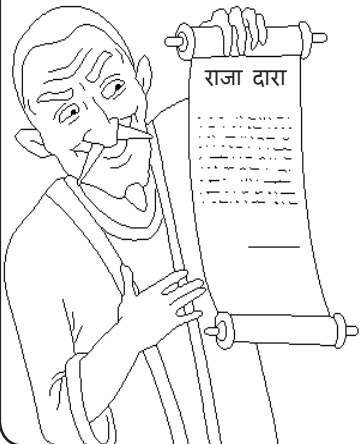 राजा दारा